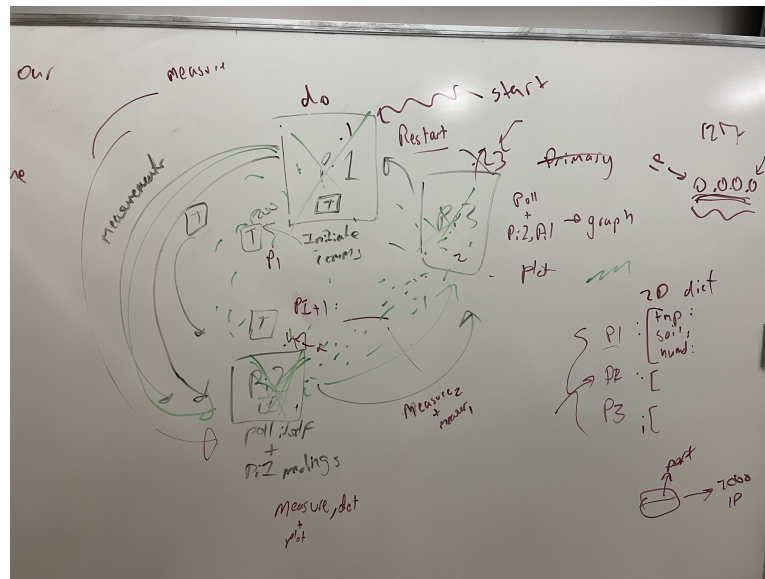 our
measure
do
start
.1
Restart
127
.23
Primary
0.0.0.0
ne
measurements
T
T
T
T
Initiate
comms
P1
Pi3
2
Poll
+
Pi2, Pi1 → graph
plot
PI+1:
2D dict
P1 : [tmp :
soil :
humd:
P2 : [
P3 : [
Pi2
Measure2
+
measur1
poll itself
+
Pi1 readings
measure, dct
+
plot
port
7000
IP